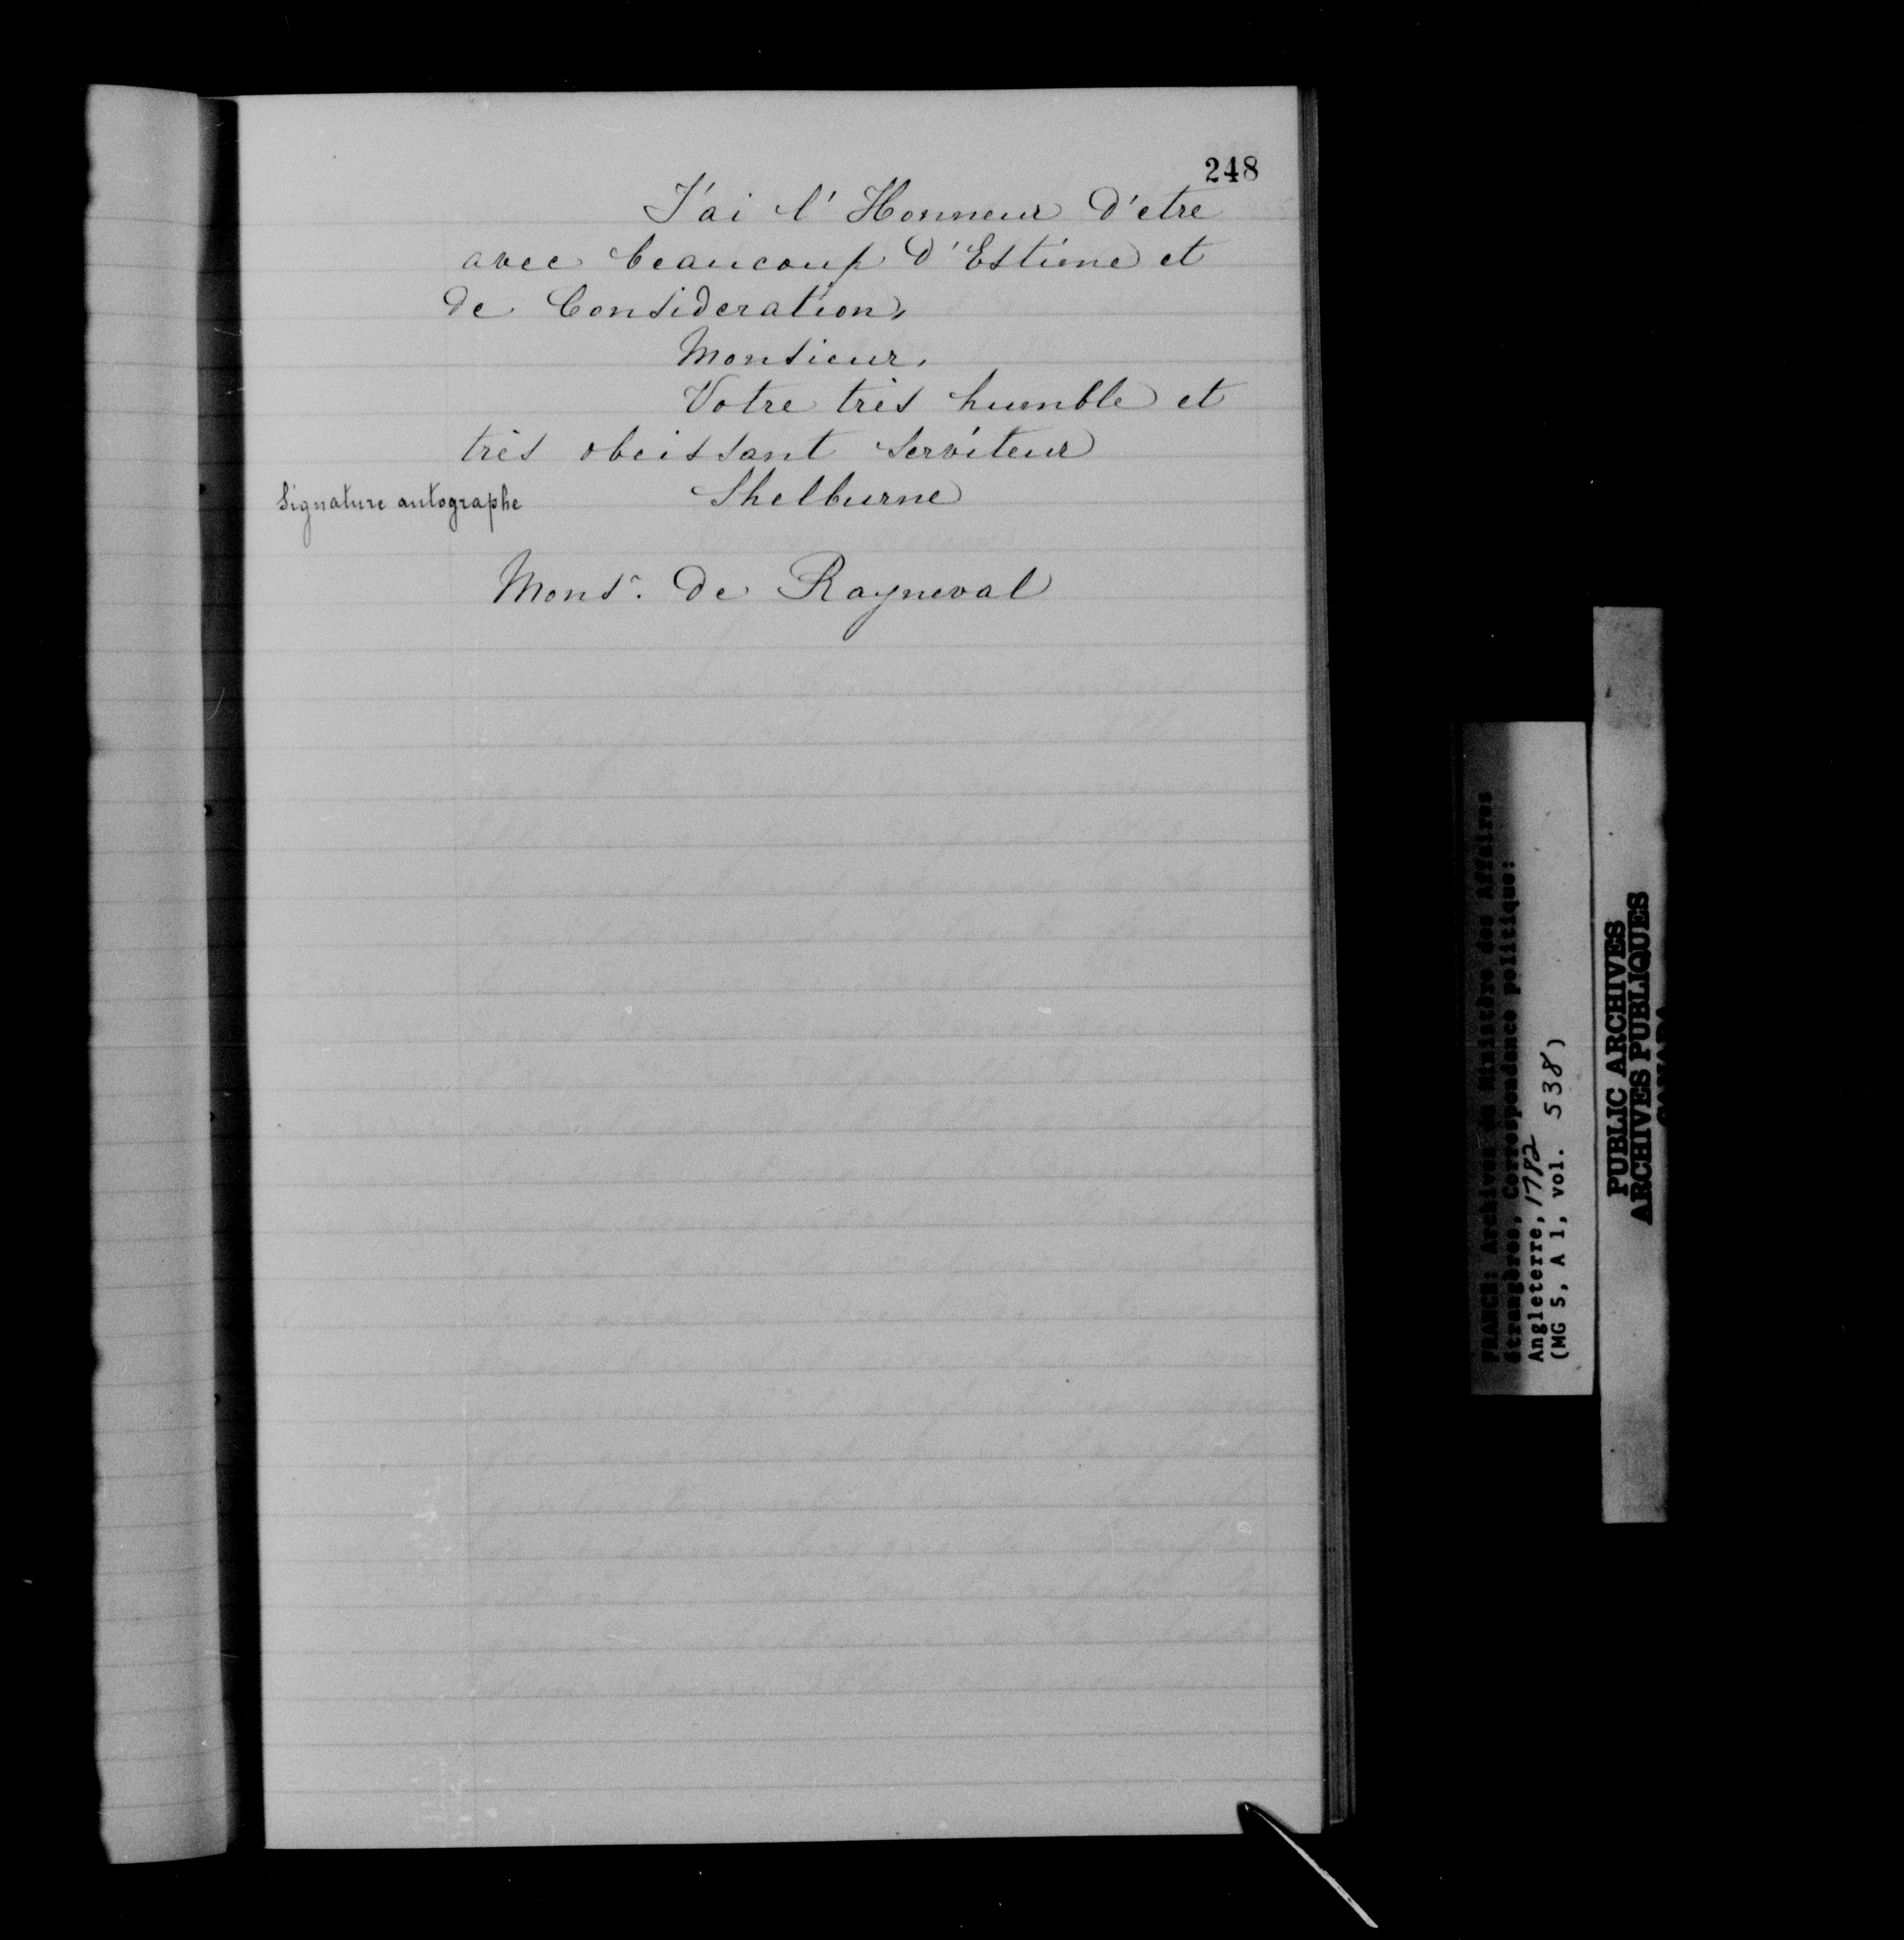 248
J'ai l'Honneur d'etre
avec beaucoup d'Estime et
de Consideration,
Monsieur,
Votre très humble et
très obeissant Serviteur
Signature autographe Shelburne
Monsr. de Rayneval
FRANCE: Archives du Ministère des Affaires
étrangères, Correspondance politique:
Angleterre, 1782
(MG 5, A 1, vol. 538)
PUBLIC ARCHIVES
ARCHIVES PUBLIQUES
CANADA